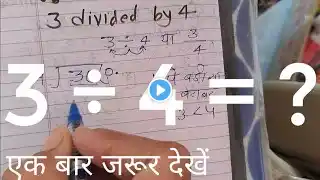 3 divided by 4.
3 ÷ 4 या 3
4
3 ÷ 4 = ?
3<4
एक बार जरूर देखें